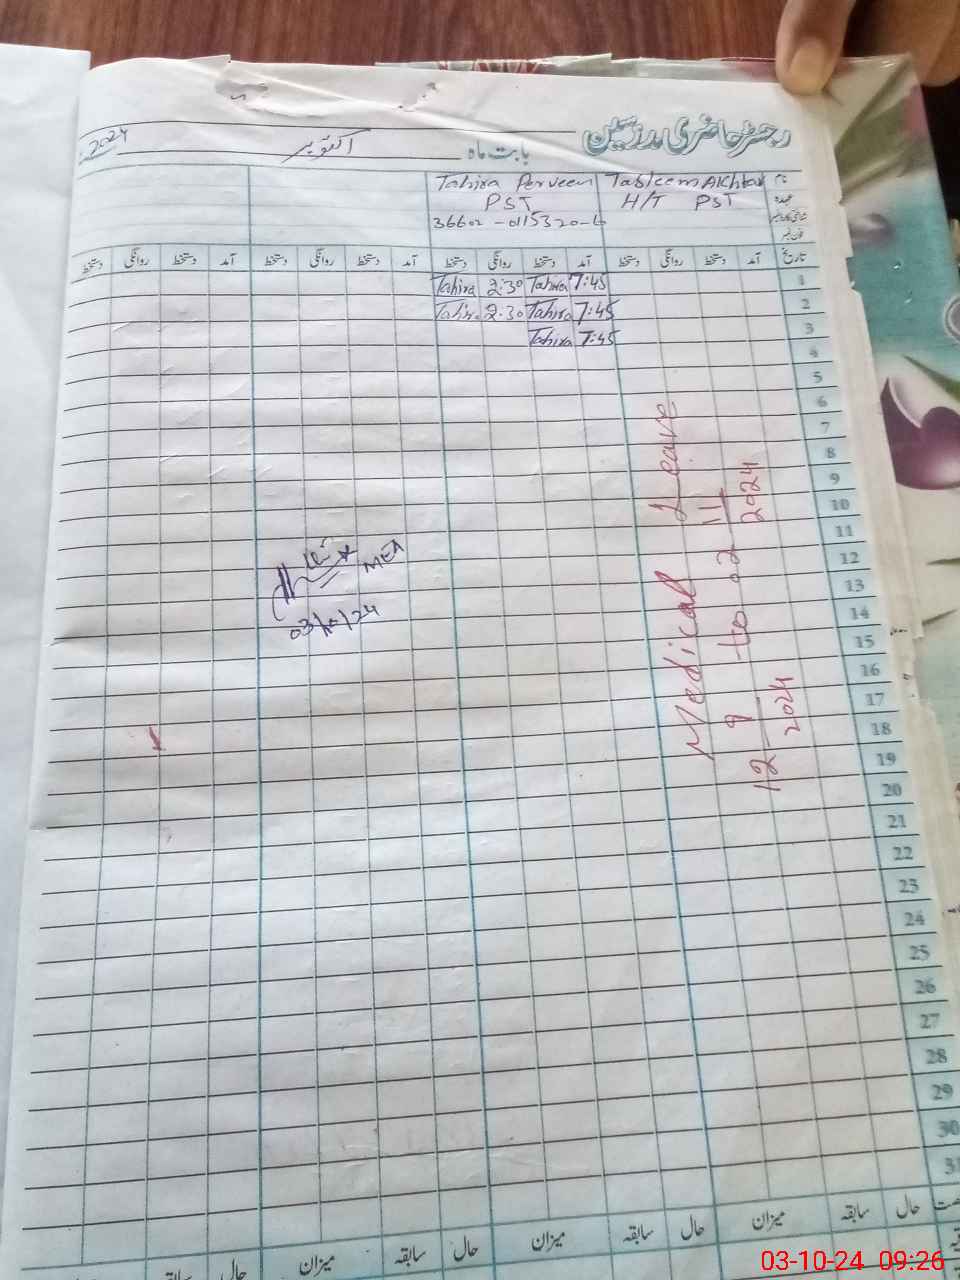 رجسٹر حاضری مدرسین
بابت ماہ اکتوبر 2024
نام Tasleem Akhtar Tahira Perveen
عہدہ H/T PST PST
شناختی کارڈ نمبر 36602-0115320-6
فون نمبر
تاریخ آمد دستخط روانگی دستخط آمد دستخط روانگی دستخط آمد دستخط روانگی دستخط آمد دستخط روانگی دستخط
1 7:45 Tahira 2:30 Tahira
2 7:45 Tahira 2:30 Tahira
3 7:45 Tahira
4
5
6
7
8
9
10
11
12
13
14
15
16
17
18
19
20
21
22
23
24
25
26
27
28
29
30
31
Medical Leave
12-9-2024 to 02-11-2024
MEA
03/10/24
حال سابقہ میزان حال سابقہ میزان حال سابقہ میزان حال
03-10-24 09:26